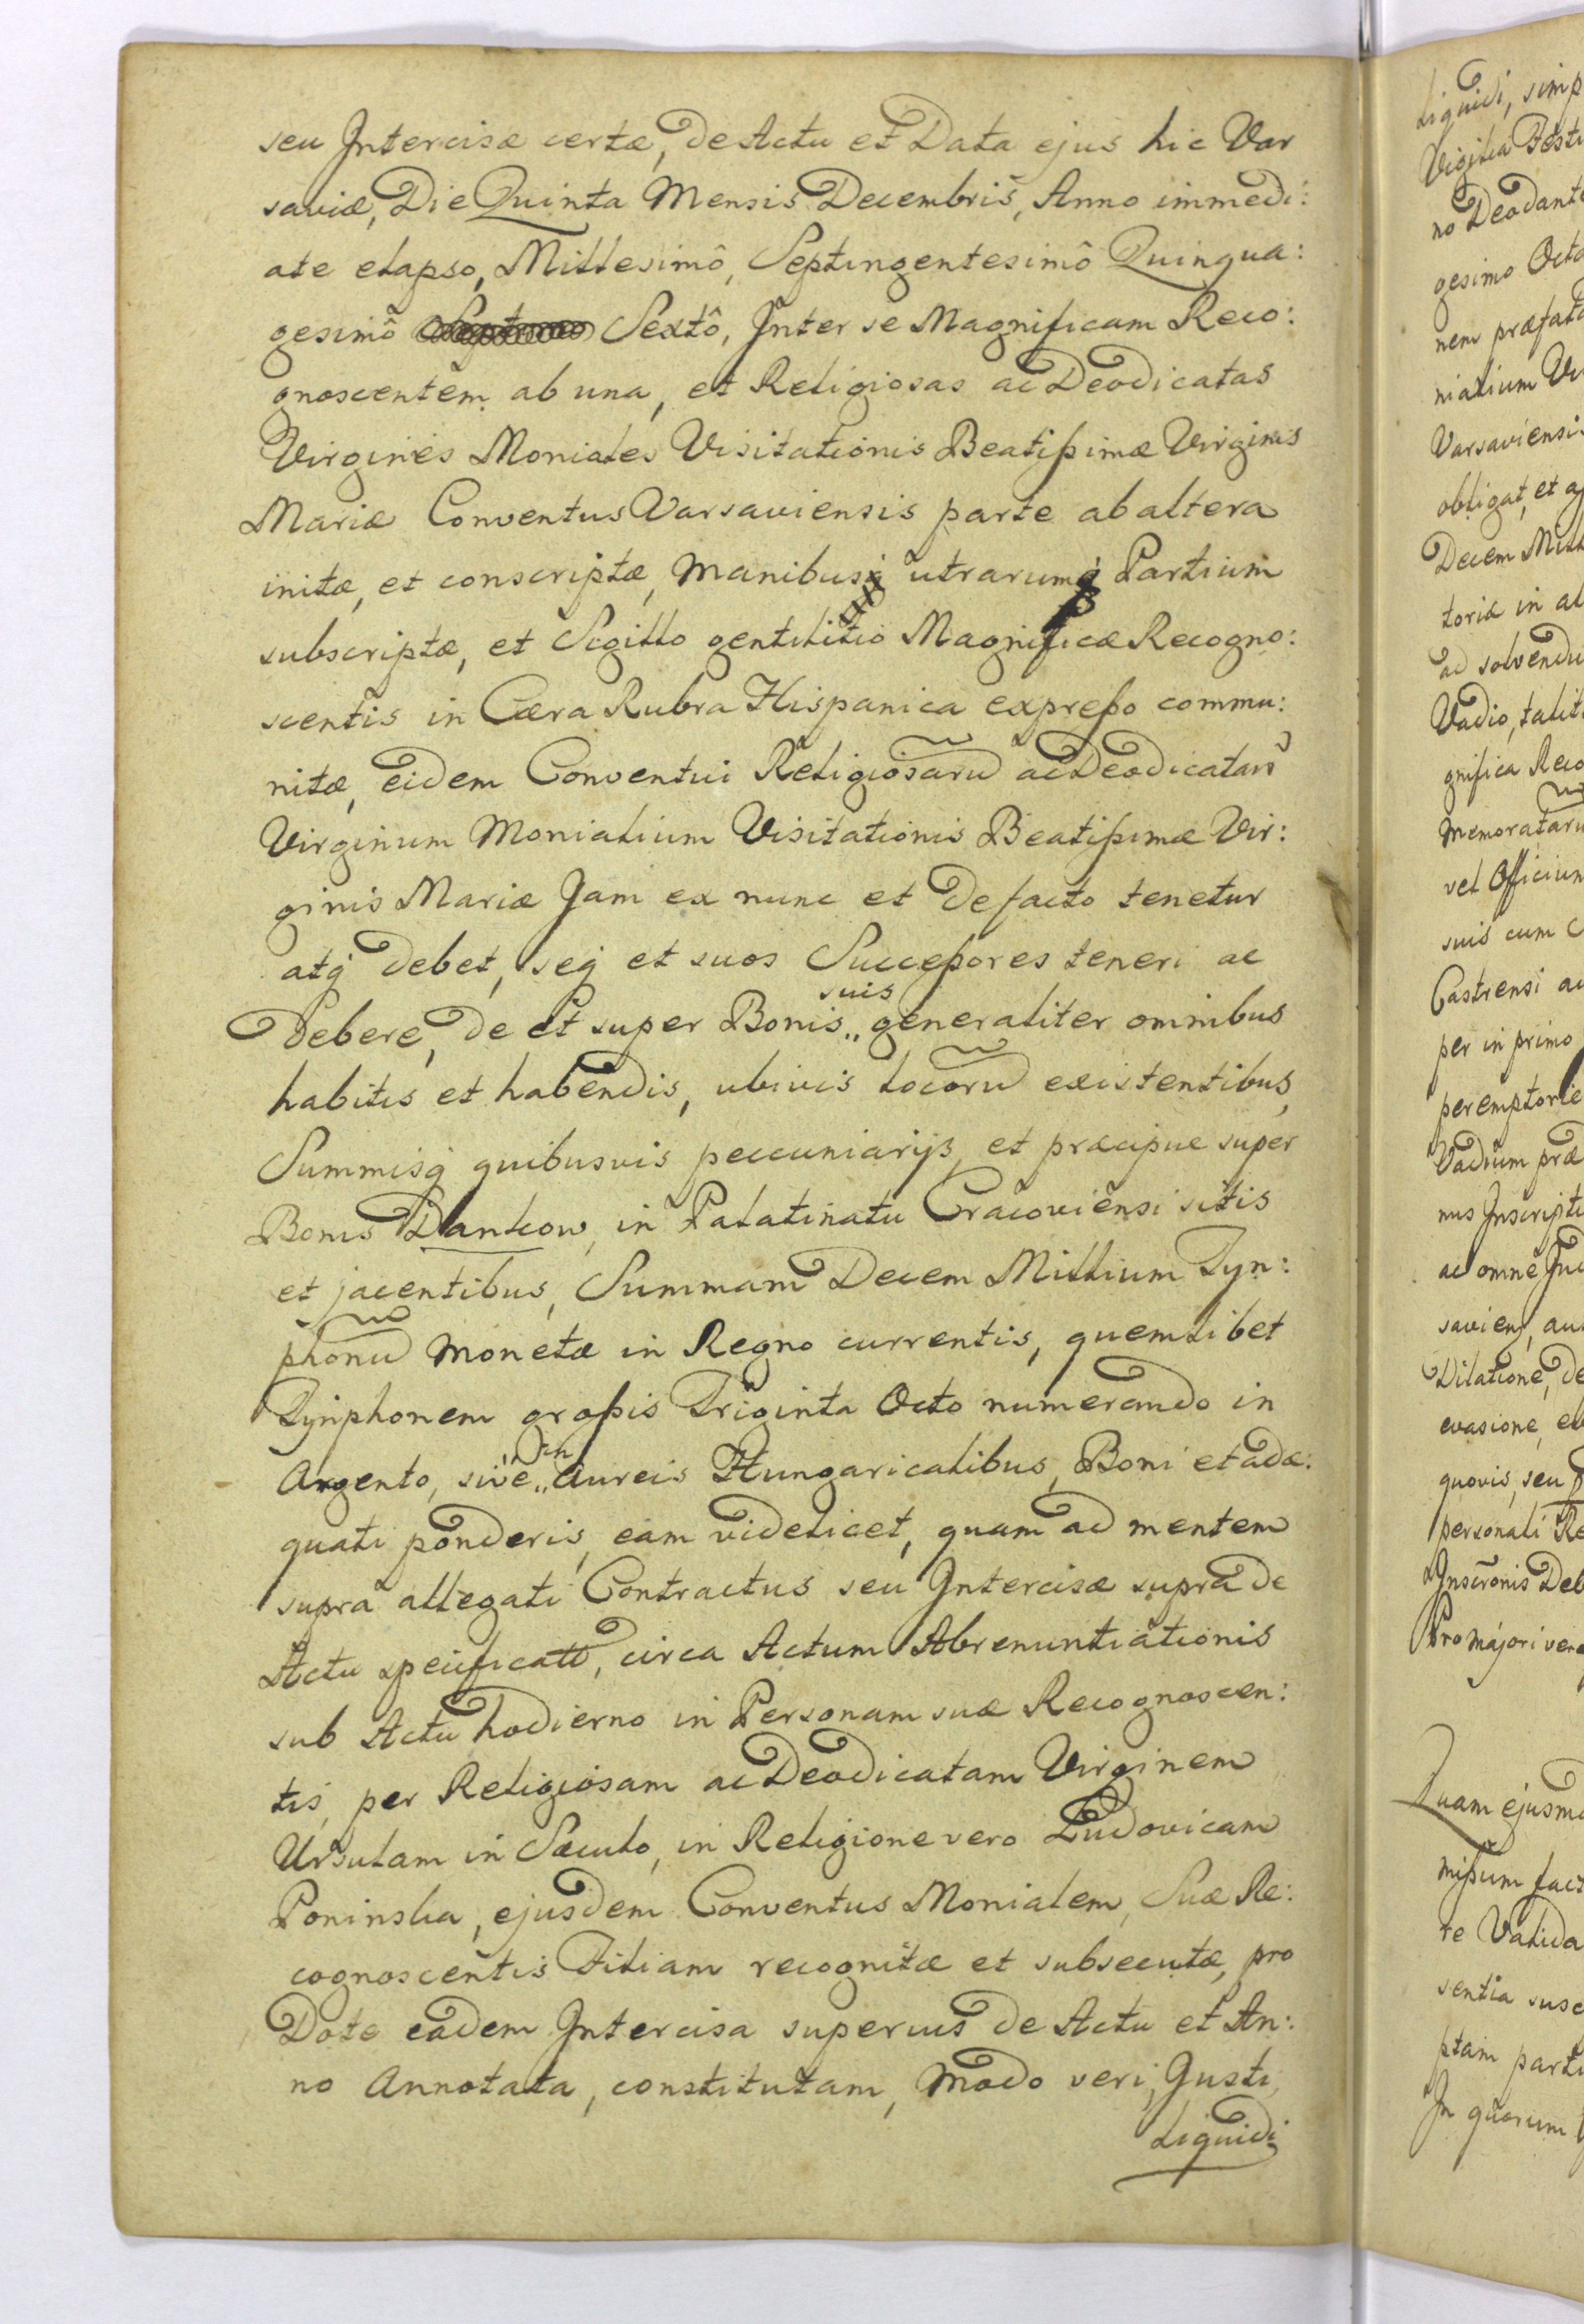 seu Intercisæ certæ, de Actu et Data ejus hic Var
saviæ, Die Quinta Mensis Decembris, Anno immedi:
ate elapso, Millesimô, Septingentesimô Quinqua:
gesimô Sextô, Inter se Magnificam Reco:
gnoscentem ab una, et Religiosas ac Deodicatas
Virgines Moniales Visitationis Beatißimæ Virginis
Mariæ Conventus Varsaviensis parte ab altera
initæ, et conscriptæ, Manibusq utrarumq Partium
subscriptæ, et Sigillo gentilitio Magnificæ Recogno:
scentis in Cæra Rubra Hispanica expreßo commu:
nitæ, eidem Conventui Religiosarũ ac Deodicatarũ
Virginum Monialium Visitationis Beatißimæ Vir:
ginis Mariæ Jam ex nunc et de facto tenetur
atq debet, seq et suos Succeßores teneri ac
debere, de et super Bonis suis generaliter omnibus
habitis et habendis, ubivis locorũ existentibus,
Summisq quibusvis peccuniarijs, et præcipue super
Bonis Dankow, in Palatinatu Cracoviensi sitis
et jacentibus, Summam Decem Millium Tyn:
phonũ Monetæ in Regno currentis, quemlibet
Tynphonem großis Triginta Octo numerando in
Argento, sive in Aureis Hungaricalibus, Boni et adæ:
quati ponderis, eam videlicet, quam ad mentem
supra allegati Contractus seu Intercisæ supra de
Actu specificatæ, circa Actum Abrenuntiationis
sub Actu hodierno in Personam suæ Recognoscen:
tis, per Religiosam ac Deodicatam Virginem
Ursulam in Sæculo, in Religione vero Ludovicam
Poninska, ejusdem Conventus Monialem, Suæ Re:
cognoscentis Filiam recognitæ et subsecutæ, pro
Dote eadem Intercisa superius de Actu et An:
no Annotata, constitutam, Modo veri, Justi,
Liquidi
Liquidi, simp
Vigilia Festi
no Deodant
gesimo Octa
nem præfata
nialium Vi
Varsaviensi
obligat, et
Decem Mill
toriæ in al
ad solvendu
Vadio, talit
gnifica Reco
Memoratarũ
vel Officium
suis cum C
Castrensi ac
per in primo
peremptorie
Vadium præ
nus Inscripti
ac omne Jud
saviens, au
Dilatione, de
evasione, el
quovis, seu
personali Re
Inscrõnis Deb
Pro majori vero
Quam ejusmo
mißum fact
re Valida
sentia susc
ptam parti
In quorum